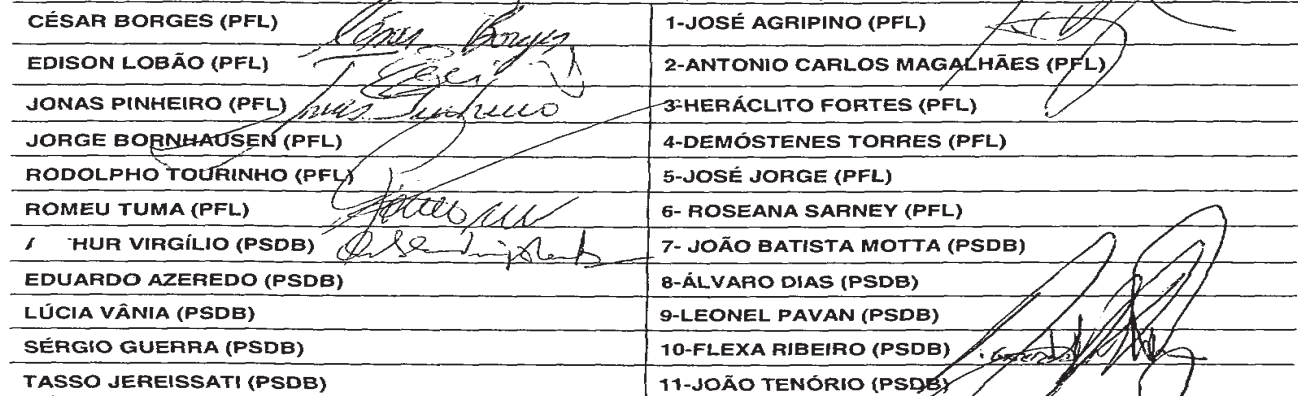 CÉSAR BORGES (PFL) César Borges 1-JOSÉ AGRIPINO (PFL)
EDISON LOBÃO (PFL) 2-ANTONIO CARLOS MAGALHÃES (PFL)
JONAS PINHEIRO (PFL) Jonas Pinheiro 3-HERÁCLITO FORTES (PFL)
JORGE BORNHAUSEN (PFL) 4-DEMÓSTENES TORRES (PFL)
RODOLPHO TOURINHO (PFL) 5-JOSÉ JORGE (PFL)
ROMEU TUMA (PFL) 6- ROSEANA SARNEY (PFL)
HUR VIRGÍLIO (PSDB) 7- JOÃO BATISTA MOTTA (PSDB)
EDUARDO AZEREDO (PSDB) 8-ÁLVARO DIAS (PSDB)
LÚCIA VÂNIA (PSDB) 9-LEONEL PAVAN (PSDB)
SÉRGIO GUERRA (PSDB) 10-FLEXA RIBEIRO (PSDB)
TASSO JEREISSATI (PSDB) 11-JOÃO TENÓRIO (PSDB)